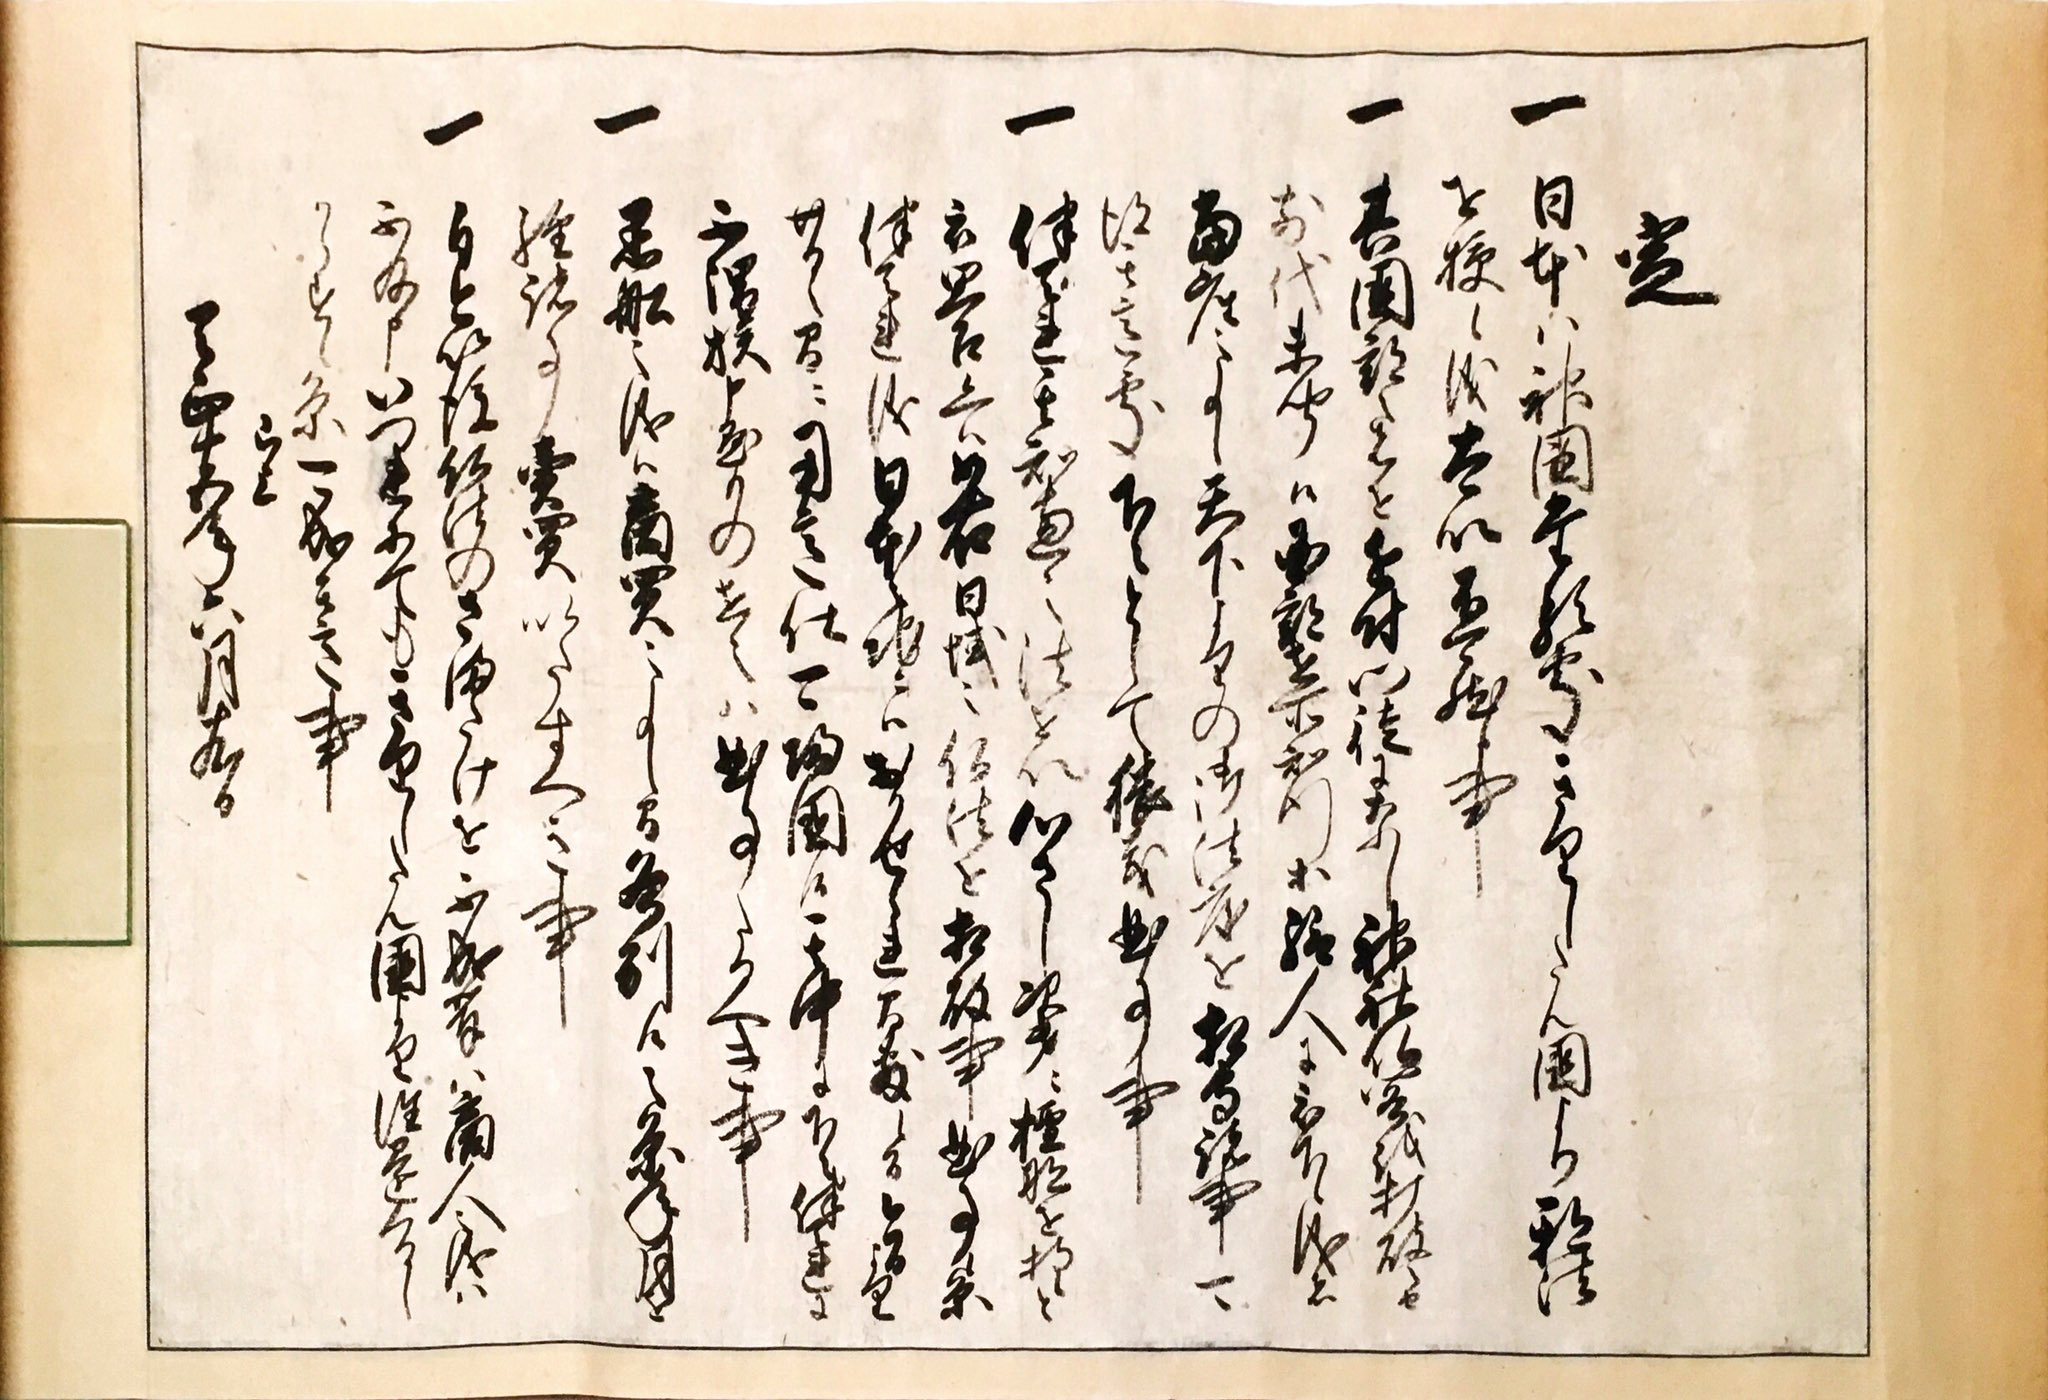 定
一 日本ハ神国たる処きりしたん国より邪法
を授候儀太以不可然候事
一 其国郡之者を近付門徒になし神社仏閣を打破之由
前代未聞候国郡在所知行等給人に被下候儀者
当座之事候天下よりの御法度を相守諸事可
得其意処下々として猥義曲事事
一 伴天連其知恵之法を以心さし次第ニ檀那を持候と
被思召候へハ如右日域之仏法を相破事曲事候条
伴天連儀日本之地ニハおかせられ間敷候間今日より
廿日之間ニ用意仕可帰国候其中に下々伴天連に
不謂族申懸もの在之ハ曲事たるへき事
一 黒船之儀ハ商買之事候間各別候之条年月を
経諸事売買いたすへき事
一 自今以後仏法のさまたけを不成輩ハ商人之儀ハ
不及申いつれにてもきりしたん国より往還くるし
からす候条可成其意事
已上
天正十五年六月十九日